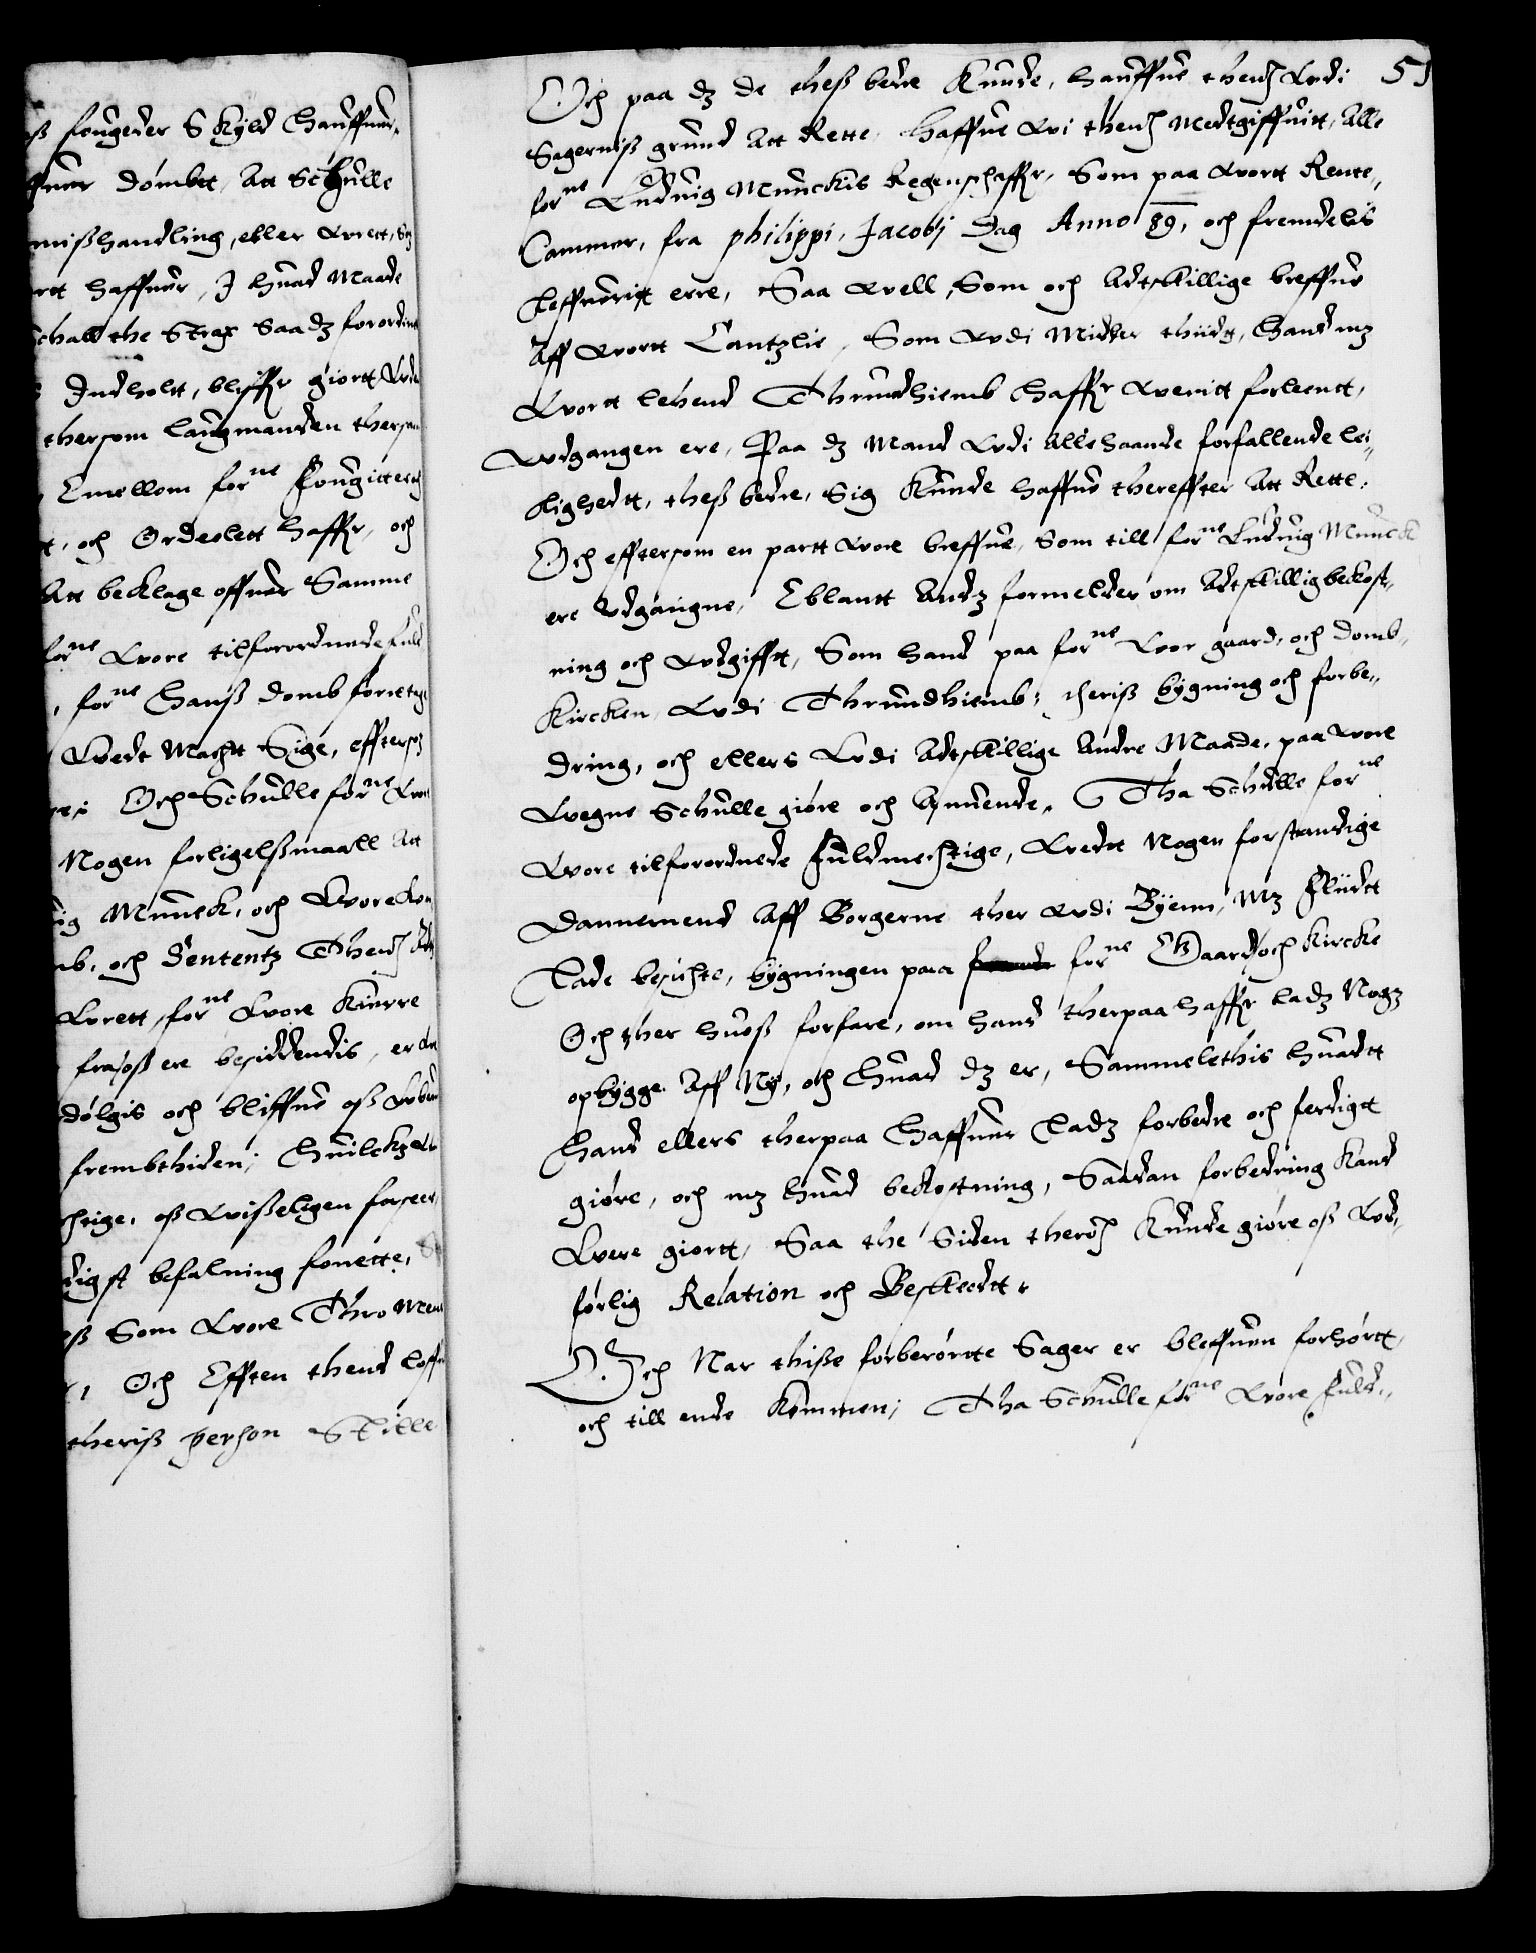 ß fougeder Skyld Hauffuer
ffuer dömbtt, Att Schulle
mißhandling, eller Wrett,
rtt haffuer, J huad Maade
schall the Strax Saa dz forordin
Indholtt, bliffr giortt
thersom laugmanden thersom
Emellom forne
t, och Ordelett haffr, och
Att becklage offuer Samme
forne Wore tilforordnede fuld
, forne Hanß domb foretage
Wedt Macht Sige, effterso
Och Schulle forne
Nogen forligelßmaall Att
ig Munck, och Wore
mb, och Sententz Thend
Wrett, forne Wore Kierre
fra oß ere besiddendis, er
dölgis och bliffue oß
frembthiden; Huilckz
chrige, oß Wißeligen forseer
digst befalning
oß Som Wore Thro Men
Och Efften thend loff
theriß person Stille
51
Och paa dz de theß bedre Kunde, hauffue thend Wdi
Sagerniß grund Att Rette, Haffue Wi thend Medtgiffuitt, Alle
forne Luduig Munckis Regenschaffr, Som paa Wortt Rente,,
Cammer, fra philippi, Jacobj Dag Anno 89, och fremdelis
leffueritt erre, Saa Well, Som och Adtskillige breffue
Aff Wortt Cantzlie, Som Wdi Midler thiidt, Hand mz
Wortt lehend Thrundhiemb haffr Weritt forleentt,
Wdgangen ere, Paa dz Mand Wdi Allehaande forfallende lei,,
lighedtt, theß bedre, Sig Kunde haffue thereffter Att Rette,
Och efftersom en partt Wore breffue, Som till forne Luduig Munck
ere Wdgangne, Eblantt Andz formelder om Adtskillig bekost,,
ning och Wdgifft, Som hand paa forne Wor gaard, och domb,,
Kircken, Wdi Thrundhiemb, theriß bygning och forbe,,
dring, och ellers Wdi Adtskillige Andre Maade, paa Wore
Wegne Schulle giöre och Anuende, Tha Schulle forne
Wore tilforordnede Fuldmechtige, Wedtt Nogen forstandige
Dannemend Aff Borgerne ther Wdi Byenn, Mz Fliidtt
Lade besichte, bygningen paa forne Gaard och Kircke
Och ther huoß forfare, om hand therpaa haffr ladz Nogz
opbygge Aff Ny, och Huad dz er, Sammelethis huadtt
Hand ellers therpaa Haffuer Ladz forbedre och ferdigtt
giöre, och mz huad bekostning, Saadan forbedring Kand
Were giortt, Saa the Siden therom Kunde giöre oß Wd,,
förlig Relation och Beskeedtt,
Och Nar thiße forberörtte Sager er bleffuen forhörtt,
och till ende Kommen; Tha Schulle forne Wore Fuld,,